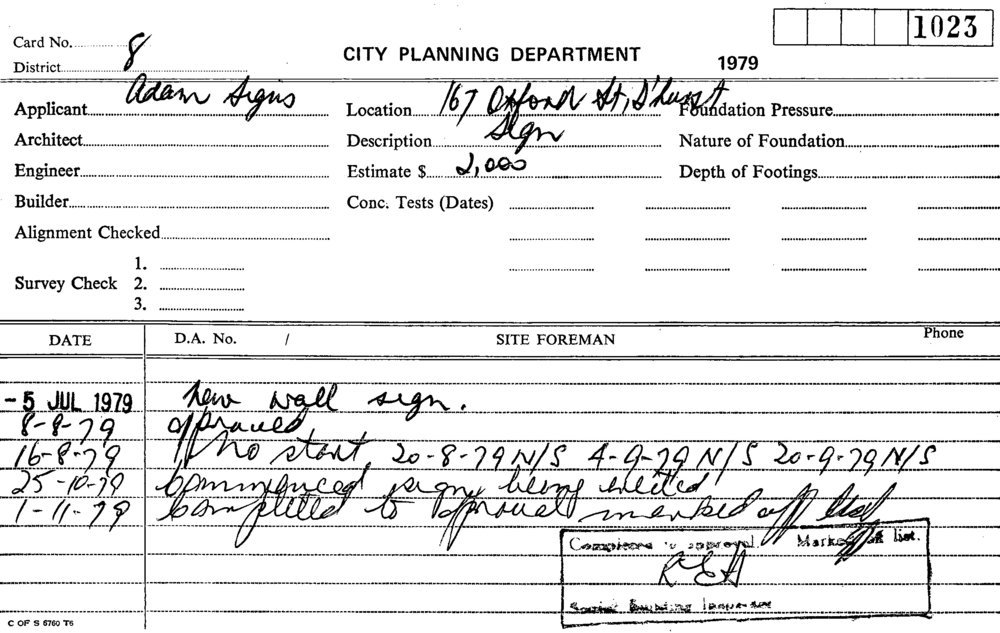 1023
Card No. 8
CITY PLANNING DEPARTMENT
1979
District
Applicant Adam Signs
Location 167 Oxford St, D'hurst
Foundation Pressure
Architect
Description Sign
Nature of Foundation
Engineer
Estimate $ 2,000
Depth of Footings
Builder
Conc. Tests (Dates)
Alignment Checked
Survey Check 1.
2.
3.
DATE D.A. No. / SITE FOREMAN Phone
- 5 JUL 1979 new wall sign.
8-8-79 approved
16-8-79 No start 20-8-79 N/S 4-9-79 N/S 20-9-79 N/S
25-10-79 Commenced sign being erected
1-11-79 Completed to approval marked off list
Completed to approval. Marked off list.
Senior Building Inspector
C OF S 6760 T6